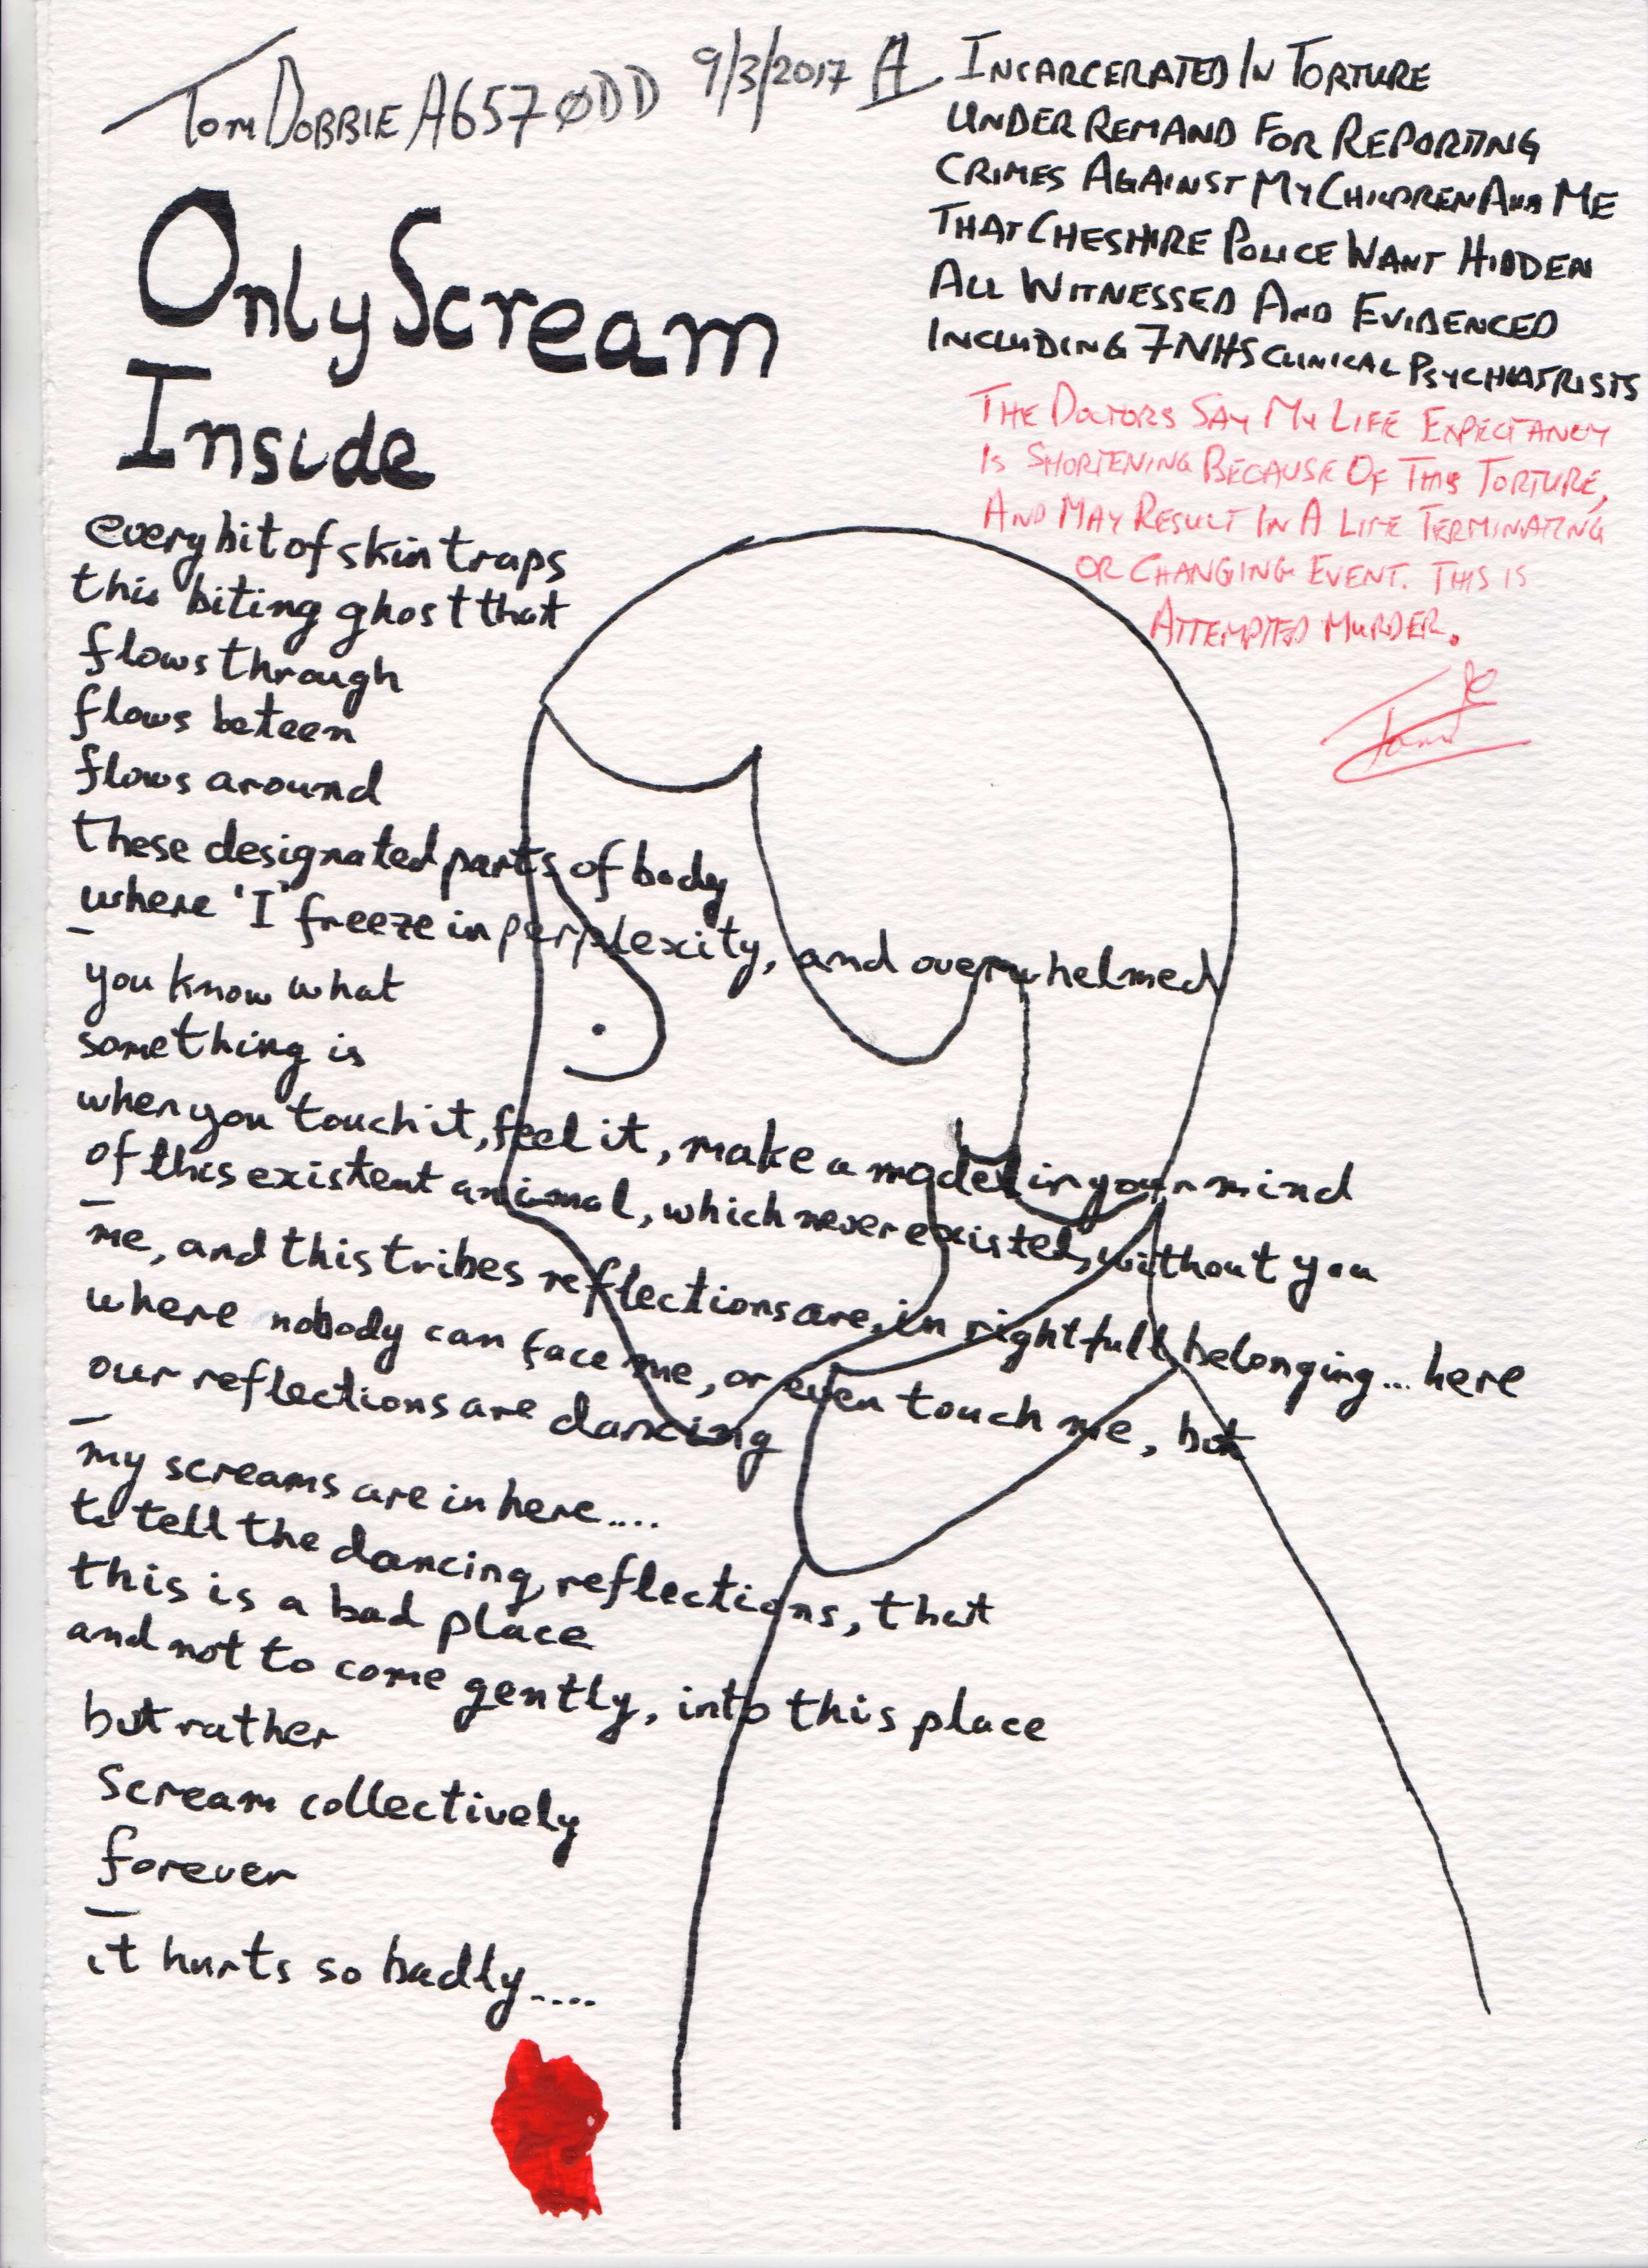 Tom DOBBIE A657ØDD 9/3/2017 A
INCARCERATED IN TORTURE
UNDER REMAND FOR REPORTING
CRIMES AGAINST MY CHILDREN AND ME
THAT CHESHIRE POLICE WANT HIDDEN
ALL WITNESSED AND EVIDENCED
INCLUDING 7 NHS CLINICAL PSYCHIATRISTS
THE DOCTORS SAY MY LIFE EXPECTANCY
IS SHORTENING BECAUSE OF THIS TORTURE,
AND MAY RESULT IN A LIFE TERMINATING
OR CHANGING EVENT. THIS IS
ATTEMPTED MURDER.
Only Scream
Inside
every bit of skin traps
this biting ghost that
flows through
flows beteen
flows around
these designated parts of body
where 'I' freeze in perplexity, and overwhelmed
—
you know what
something is
when you touch it, feel it, make a model in your mind
of this existent animal, which never existed, without you
—
me, and this tribes reflections are, in rightfull belonging... here
where nobody can face me, or even touch me, but
our reflections are dancing
—
my screams are in here....
to tell the dancing reflections, that
this is a bad place
and not to come gently, into this place
but rather
scream collectively
forever
—
it hurts so badly.....